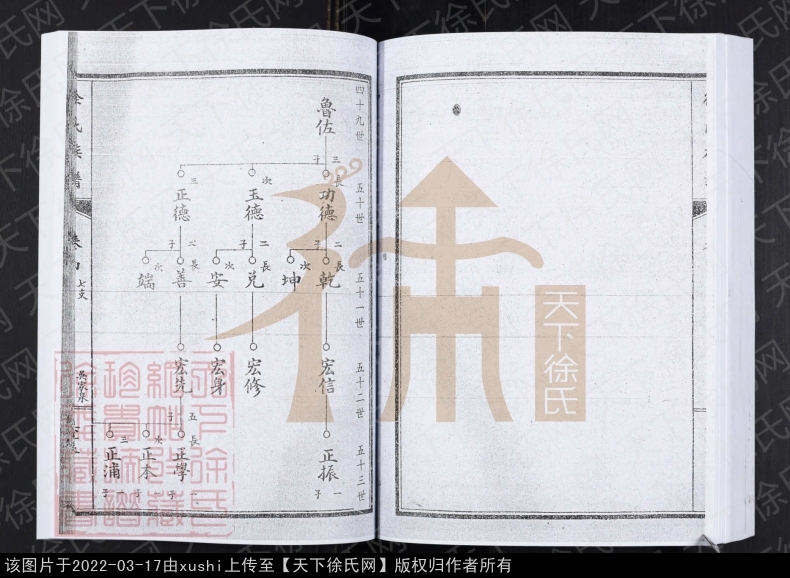 四十九世
魯佐
三子
五十世
長
功德
次
玉德
三
正德
二子
二子
二子
五十一世
長
乾
次
坤
長
兑
次
安
長
善
次
端
五十二世
宏信
宏修
宏身
宏先
五子
五十三世
正振
一子
長
正學
一子
次
正本
子
三
正浦
六子
徐氏族譜
卷九
七支
吳家泉
天下徐氏
该图片于2022-03-17由xushi上传至【天下徐氏网】版权归作者所有